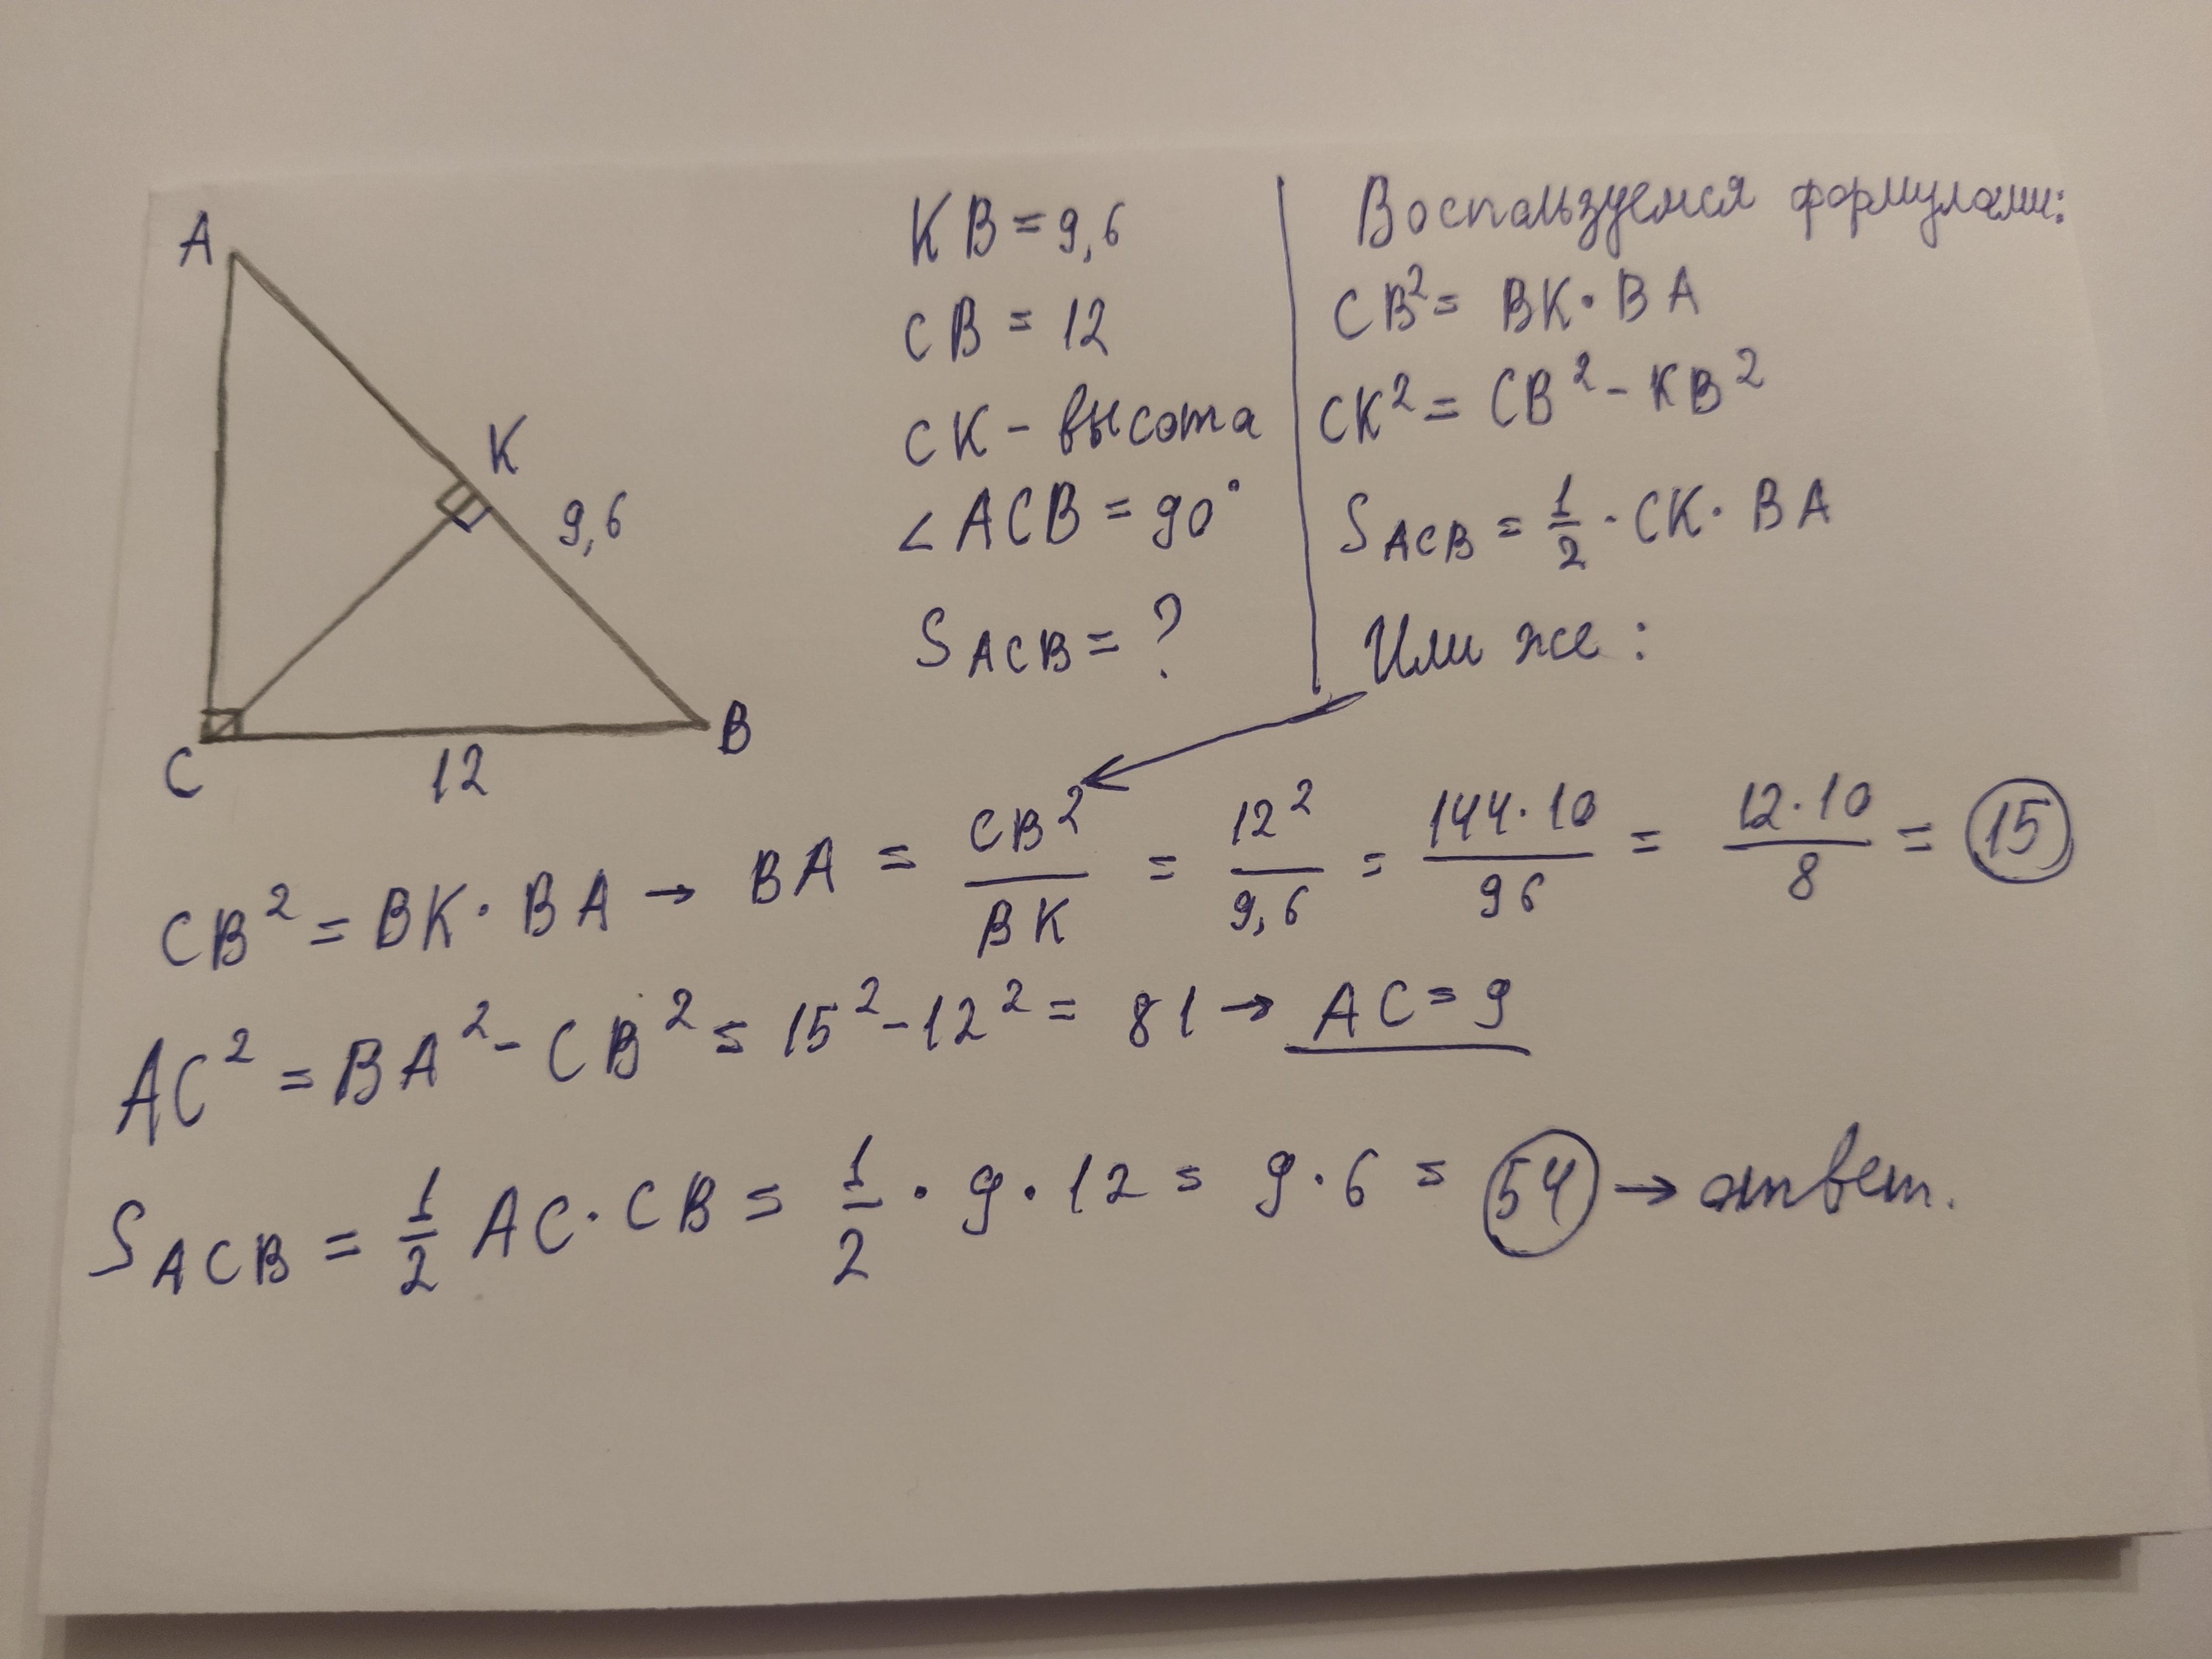 A
K
9,6
C
12
B
KB = 9,6
CB = 12
CK - высота
∠ ACB = 90°
S ACB = ?
Воспользуемся формулами:
CB² = BK · BA
CK² = CB² - KB²
S ACB = 1/2 · CK · BA
Или же :
CB² = BK · BA → BA = CB²/BK = 12²/9,6 = 144·10/96 = 12·10/8 = 15
AC² = BA² - CB² = 15² - 12² = 81 → AC = 9
S ACB = 1/2 AC · CB = 1/2 · 9 · 12 = 9 · 6 = 54 → ответ.